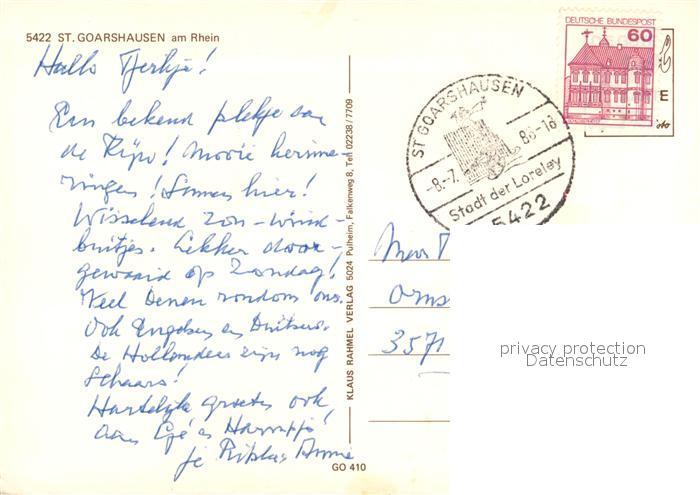 5422 ST. GOARSHAUSEN am Rhein
Hallo
Een bekend plekje aan
de Rijn! Mooie herinne-
ringen! Simmer hier!
Wisselend zon-wind-
buitjes. Lekker door-
gewaaid op Zondag!
Veel Denen rondom ons.
Ook Engelsen en Duitsers.
De Hollanders zijn nog
schaars!
Hartelijke groeten ook
aan
je
KLAUS RAHMEL VERLAG 5024 Pulheim, Falkenweg 8, Tel. 02238/7709
GO 410
DEUTSCHE BUNDESPOST
60
E
ST. GOARSHAUSEN
-8.-7. 85-18
Stadt der Loreley
5422
3571
privacy protection
Datenschutz